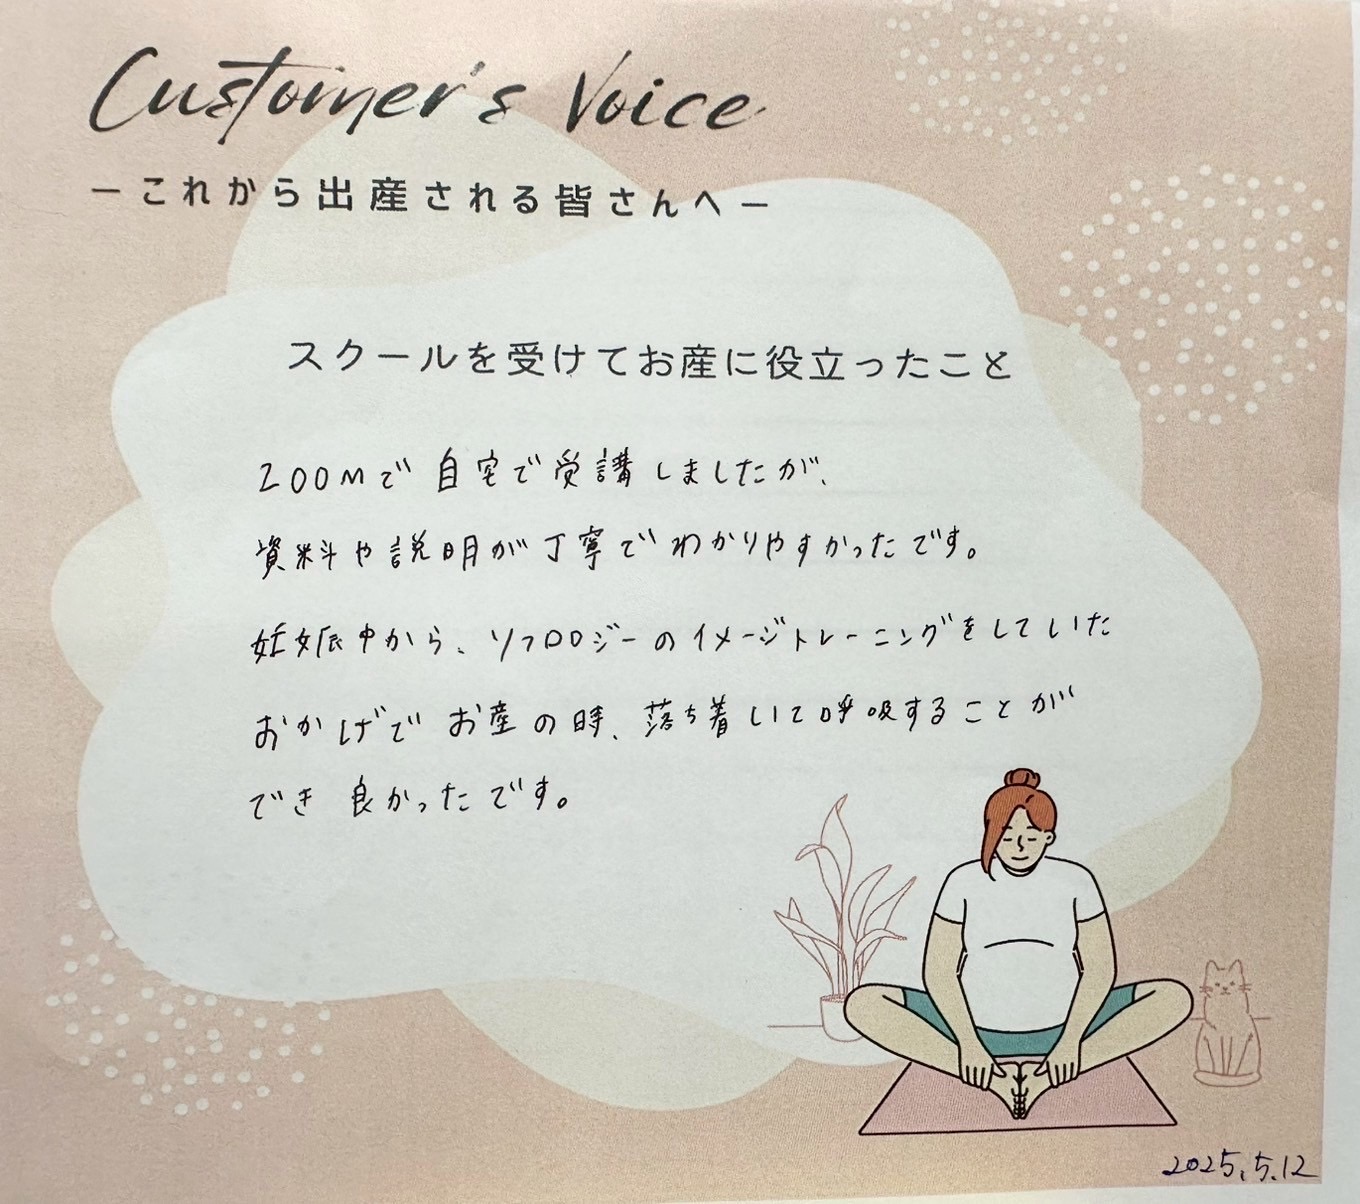 Customer's Voice
ーこれから出産される皆さんへー
スクールを受けてお産に役立ったこと
ZOOMで自宅で受講しましたが、
資料や説明が丁寧でわかりやすかったです。
妊娠中から、ソフロロジーのイメージトレーニングをしていた
おかげでお産の時、落ち着いて呼吸することが
でき良かったです。
2025.5.12